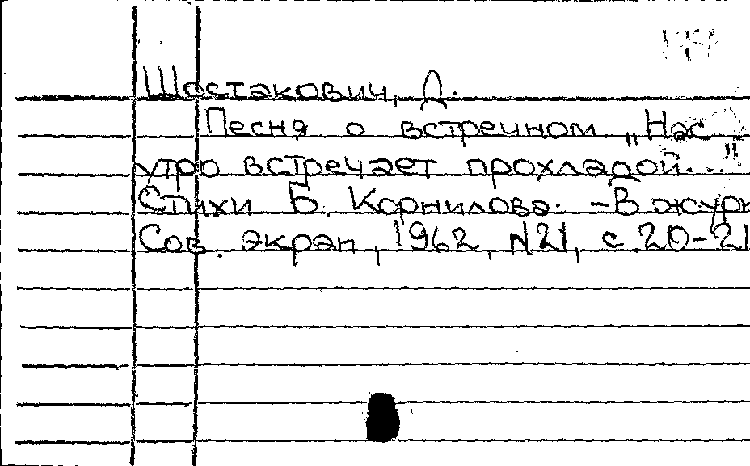 Шостакович, Д.
Песня о встречном „Нас
утро встречает прохладой..."
Стихи Б. Корнилова. - В журн
Сов. экран, 1962, N21, с. 20-21